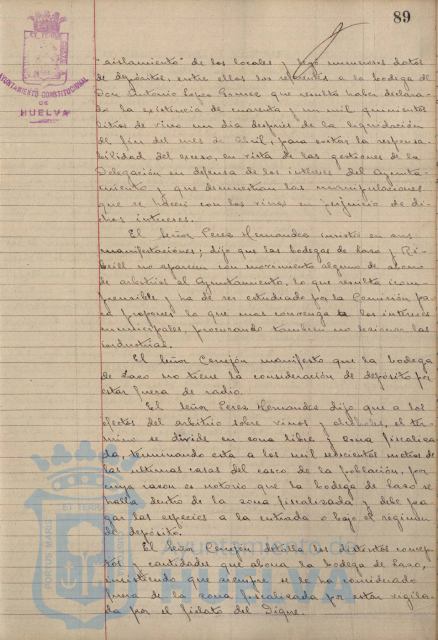 89
AYUNTAMIENTO CONSTITUCIONAL
DE
HUELVA
"aislamiento" de los locales y leyó numerosos datos
de depósitos, entre ellos los referentes a la bodega de
Don Antonio López Gómez que resulta haber declara-
do la existencia de cuarenta y un mil quinientos
litros de vino un día después de la liquidación
de fin del mes de Abril, para evitar la responsa-
bilidad del exceso, en vista de las gestiones de la
Delegación en defensa de los intereses del Ayunta-
miento y que demuestran las manipulaciones
que se hacen con los vinos en perjuicio de di-
chos intereses.
El Señor Perez Hernandez insistió en sus
manifestaciones; dijo que las bodegas de Laso y
no aparecen con movimiento alguno de abono
de arbitrios al Ayuntamiento, lo que resulta incom-
prensible y ha de ser estudiado por la Comisión pa-
ra proponer lo que mas convenga a los intereses
municipales, procurando tambien no lesionar las
industrias.
El Señor Cerejón manifestó que la bodega
de Laso no tiene la consideración de depósito por
estar fuera de radio.
El Señor Perez Hernandez dijo que a los
efectos del arbitrio sobre vinos y alcoholes, el tér-
mino se divide en zona libre y zona fiscaliza-
da, terminando esta a los mil seiscientos metros de
las últimas casas del casco de la población, por
cuya razon es notorio que la bodega de Laso se
halla dentro de la zona fiscalizada y debe pa-
gar las especies a la entrada o bajo el régimen
de depósito.
El Señor Cerejón detalla los distintos concep-
tos y cantidades que abona la bodega de Laso,
insistiendo que siempre se le ha considerado
fuera de la zona fiscalizada por estar vigila-
da por el fielato del Dique.
Ayuntamiento de
HUELVA